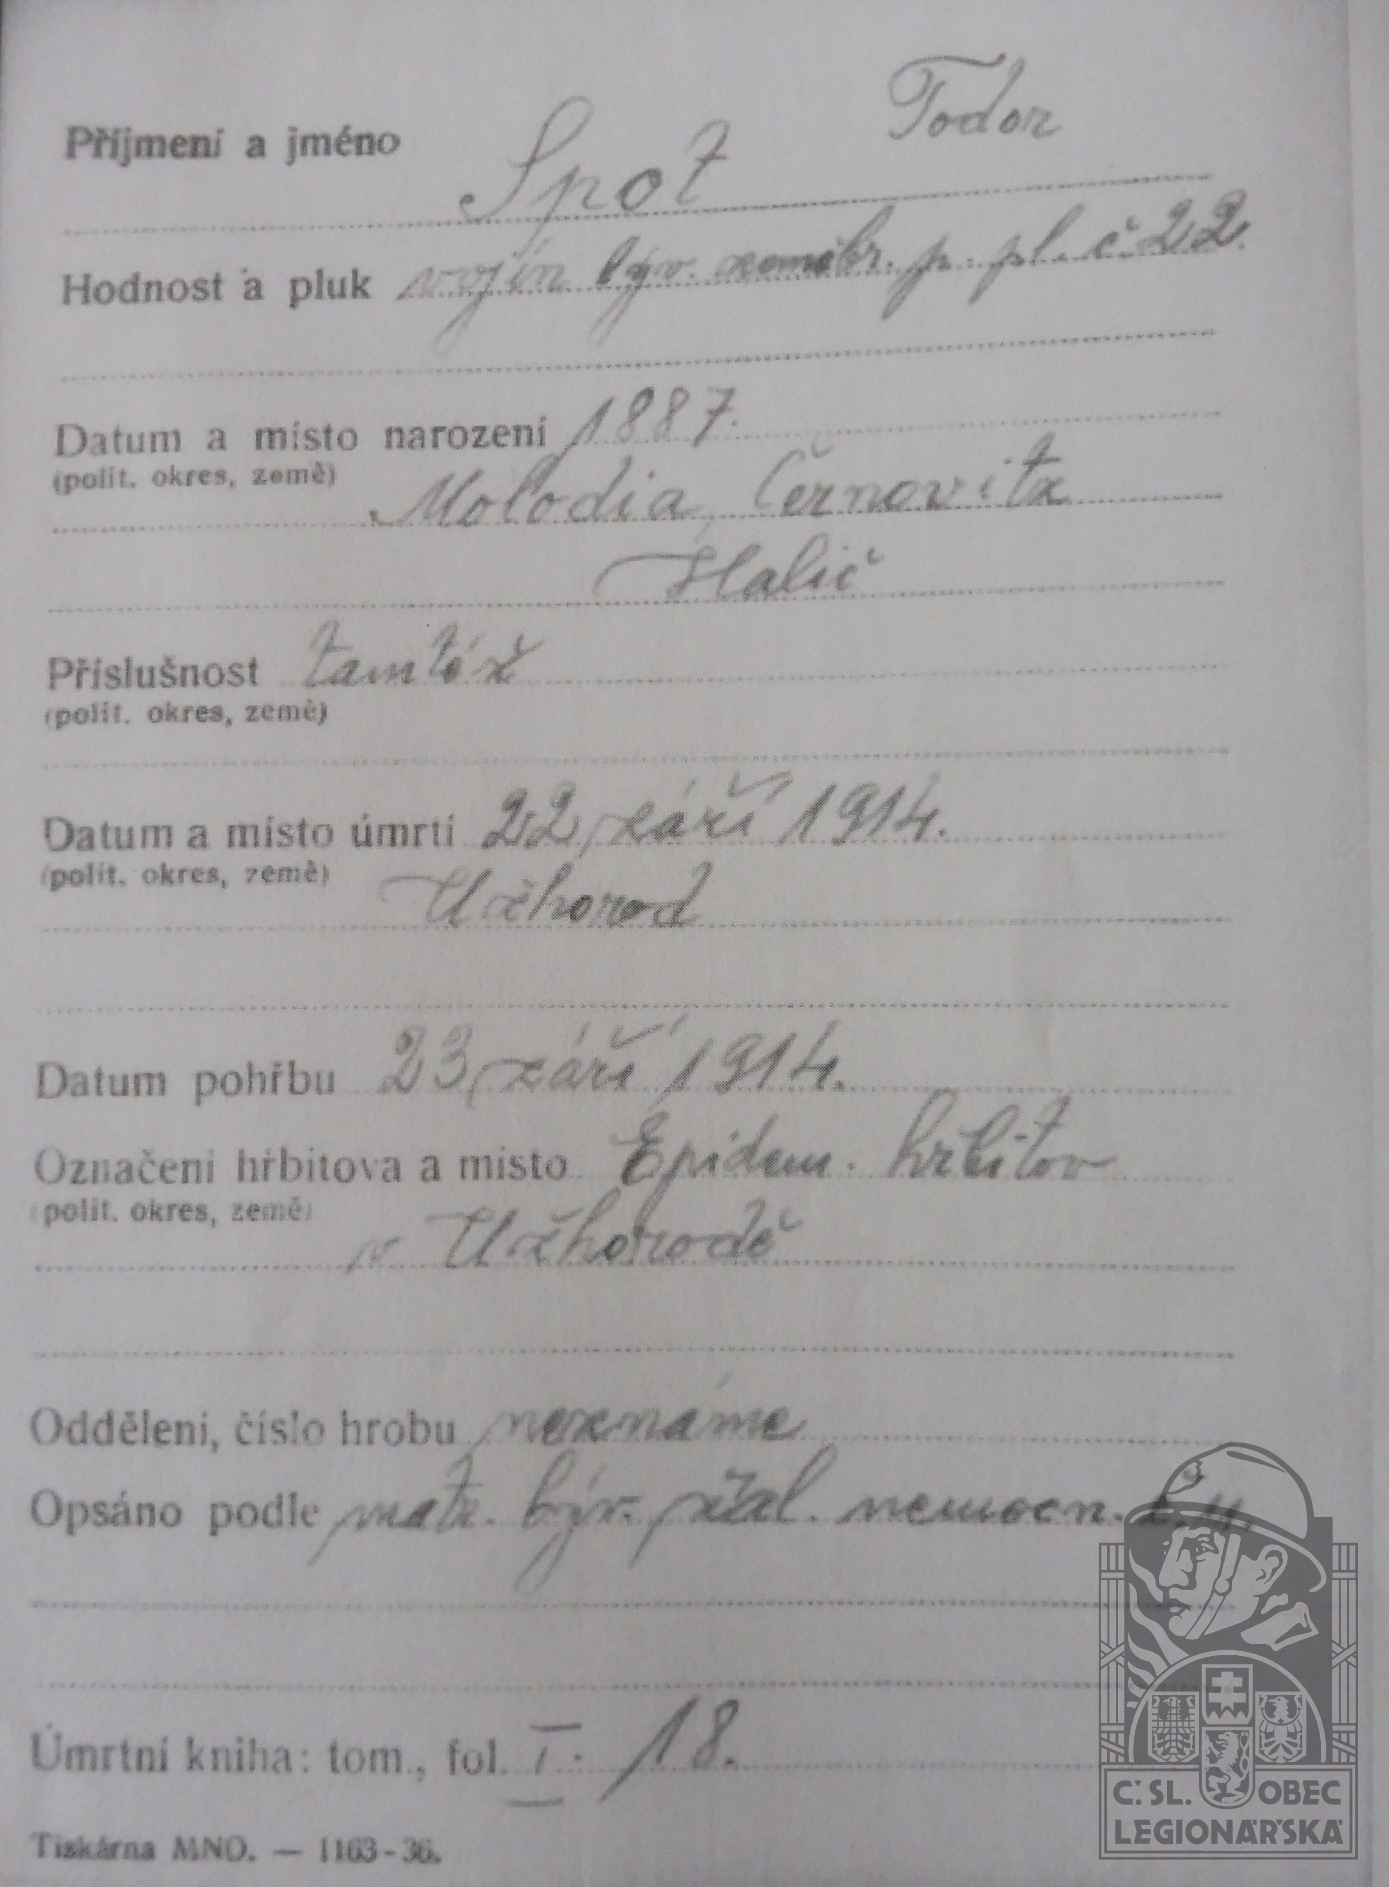 Todor
Příjmení a jméno Spot
Hodnost a pluk vojín býv. zeměbr. p. pl. č. 22.
Datum a místo narození 1887.
(polit. okres, země)
Molodia, Černovitz
Halič
Příslušnost tamtéž
(polit. okres, země)
Datum a místo úmrtí 22. září 1914.
(polit. okres, země)
Užhorod
Datum pohřbu 23. září 1914.
Označení hřbitova a místo Epidem. hřbitov
(polit. okres, země)
v Užhorodě
Oddělení, číslo hrobu neznámé
Opsáno podle matr. býv. zál. nemocn. č. 4.
Úmrtní kniha: tom., fol. I. 18.
Tiskárna MNO. — 1163-36.
Č. SL. OBEC
LEGIONÁŘSKÁ